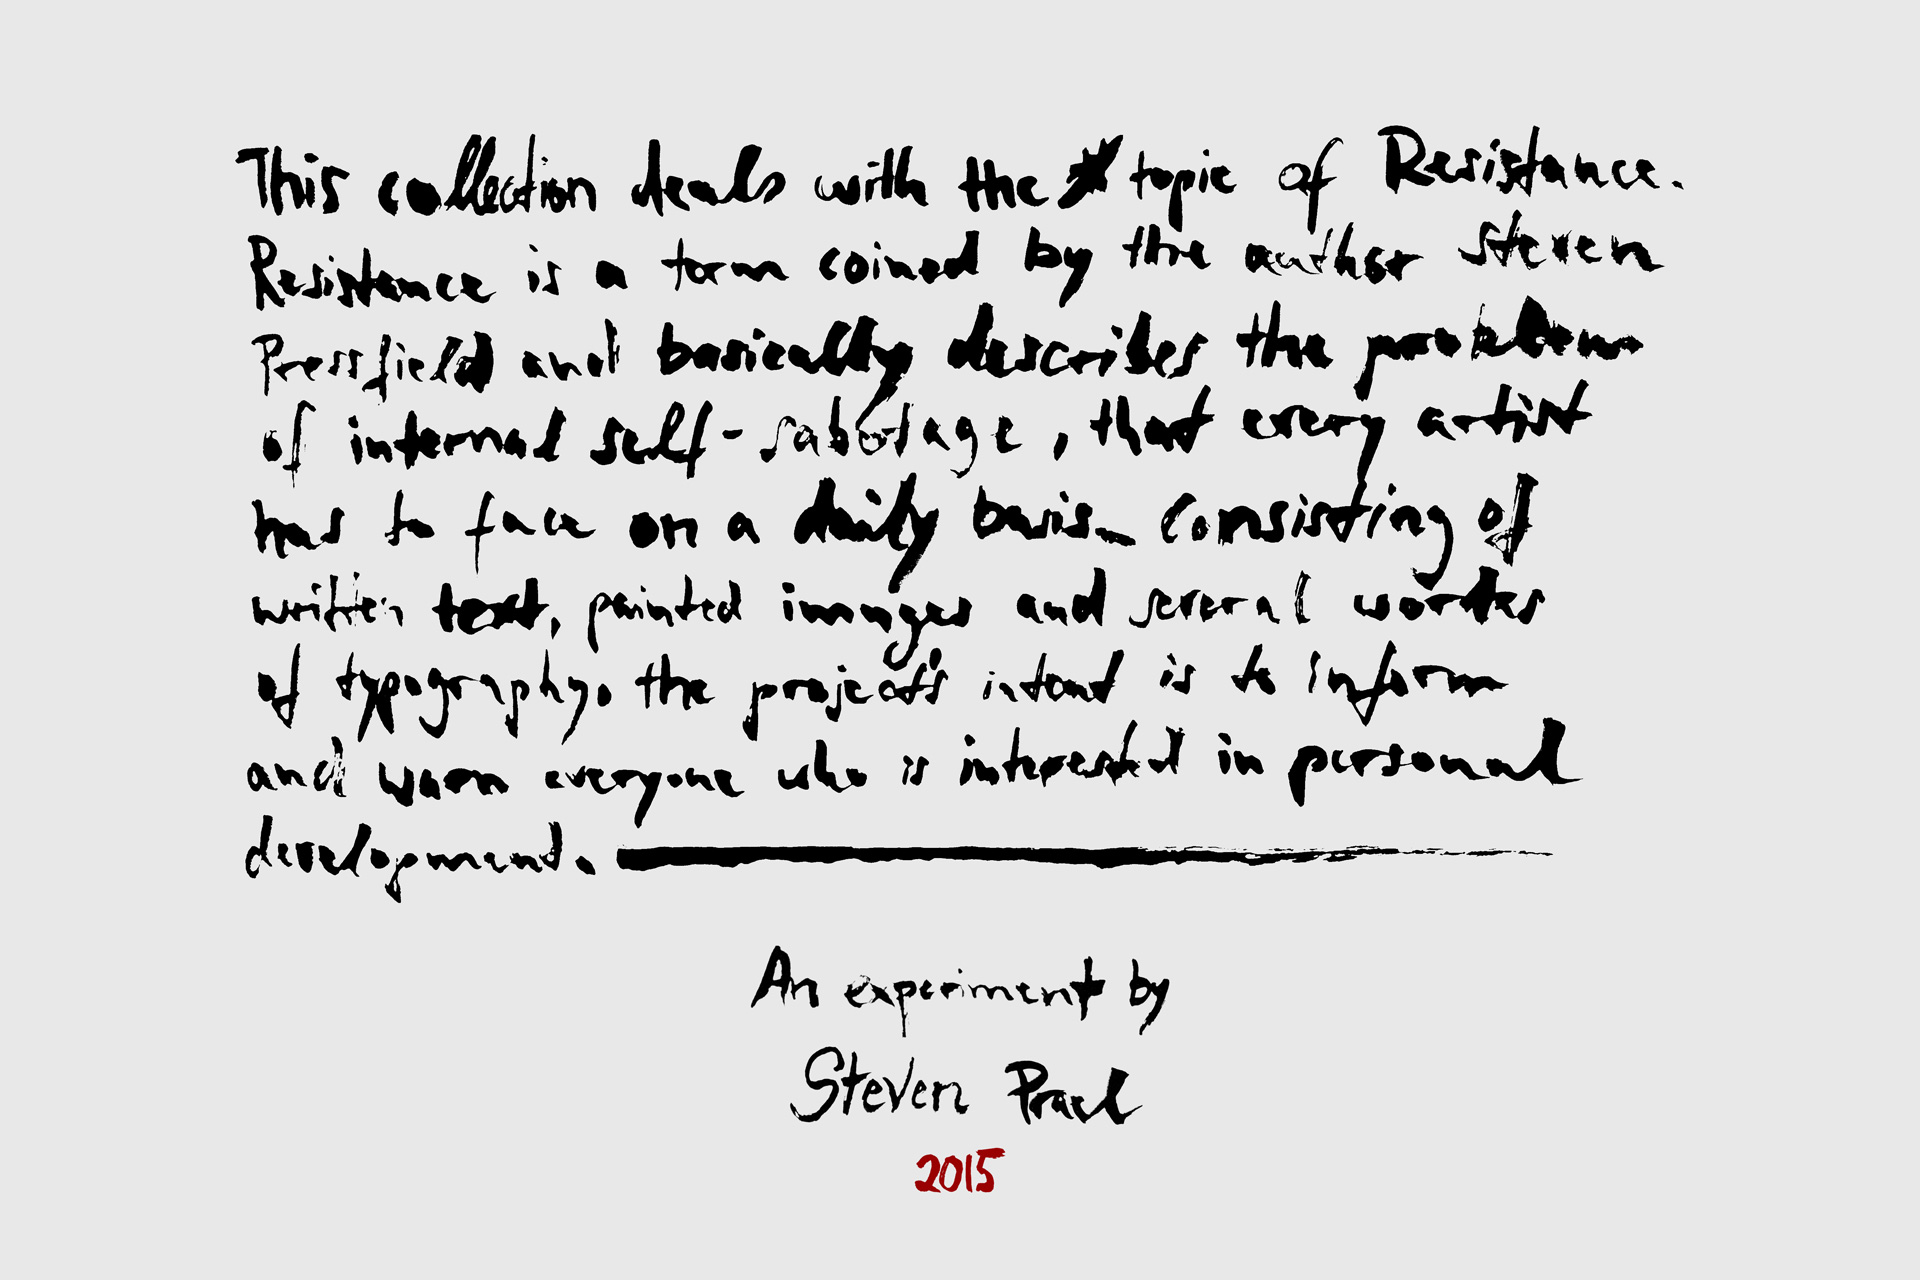 This collection deals with the topic of Resistance.
Resistance is a term coined by the author Steven
Pressfield and basically describes the problem
of internal self-sabotage, that every artist
has to face on a daily basis. Consisting of
written text, painted images and several workes
of typography. the project's intent is to inform
and warn everyone who is interested in personal
development.
An experiment by
Steven Prael
2015